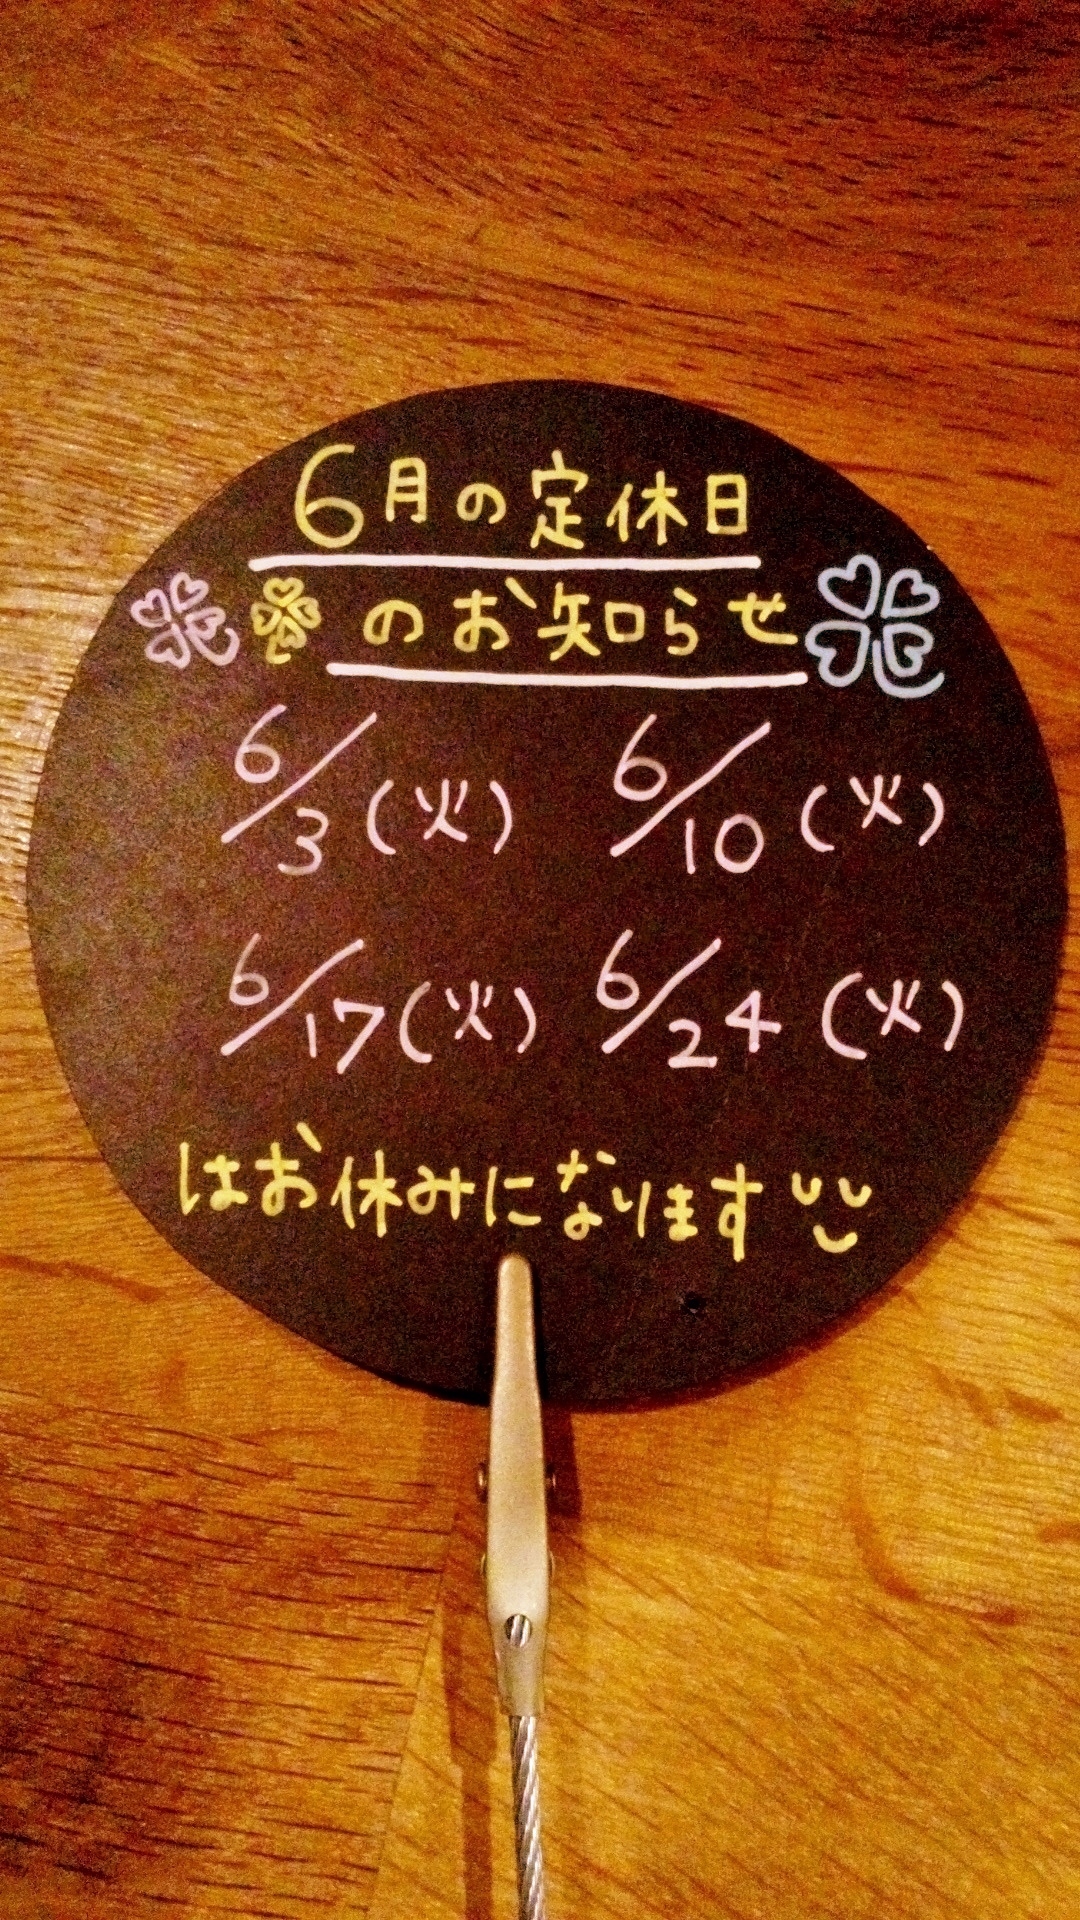 6月の定休日
のお知らせ
6/3(火) 6/10(火)
6/17(火) 6/24(火)
はお休みになります